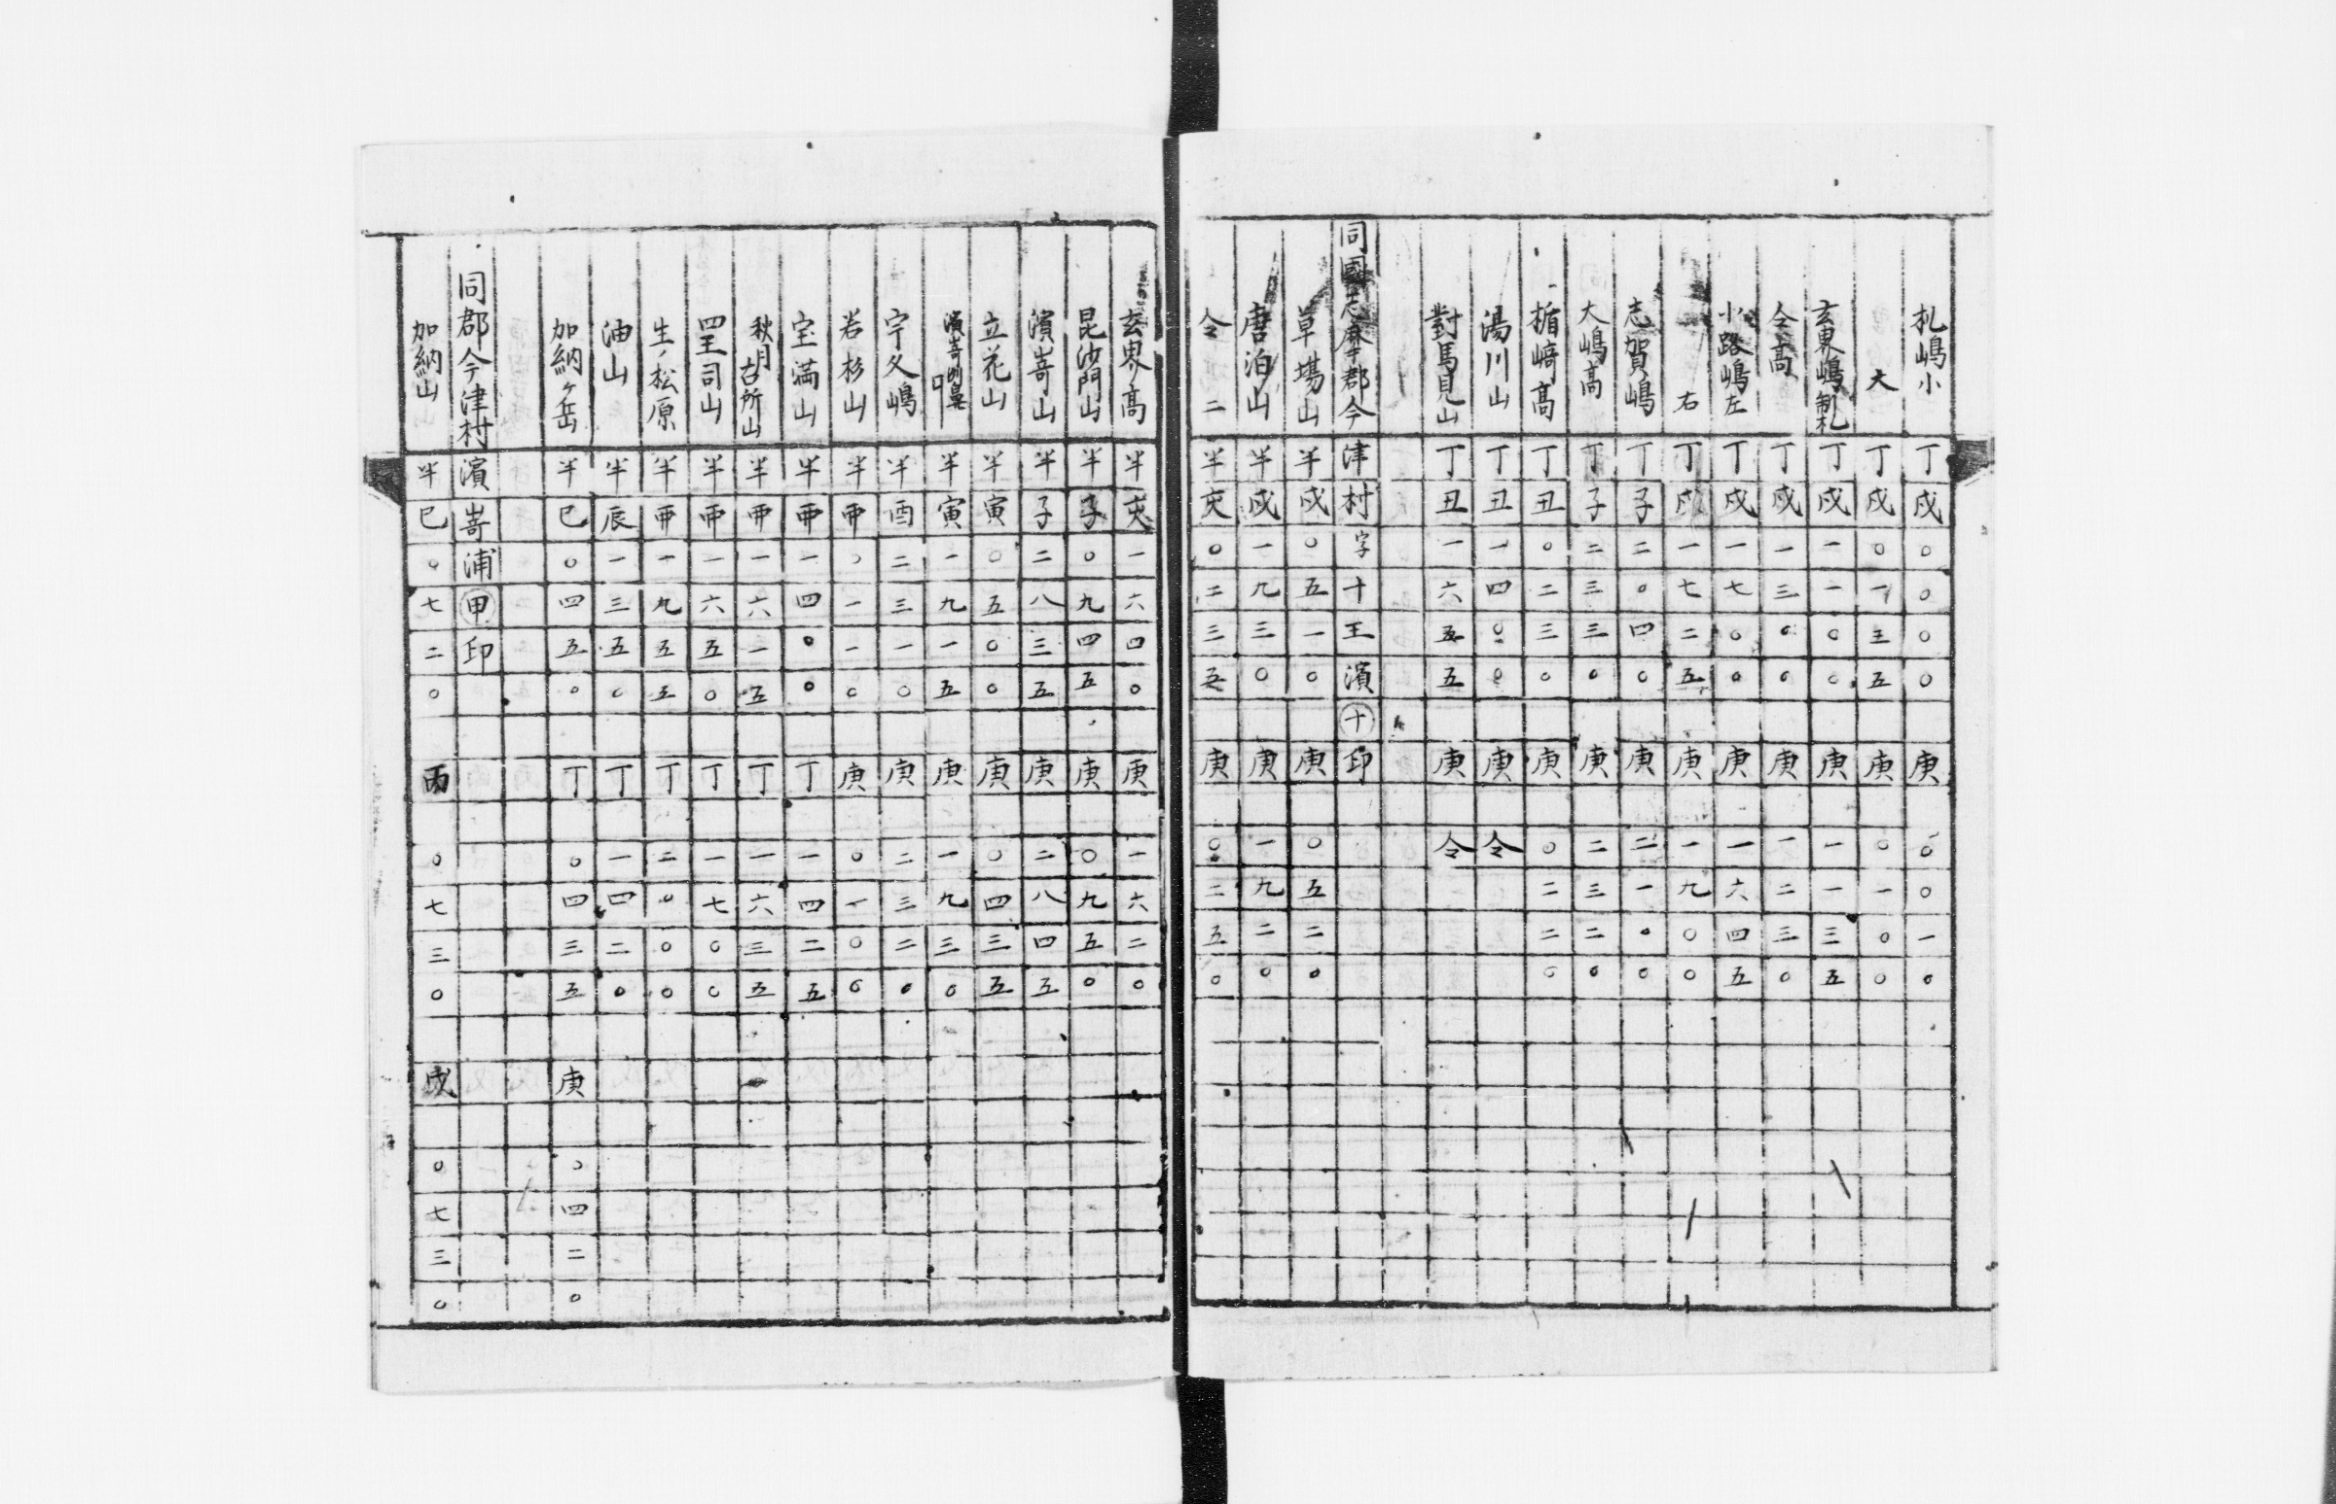 札嶋小 丁 戍 〇 〇 〇 〇 庚 〇 〇 一 〇
大 丁 戍 〇 一 三 五 庚 〇 一 〇 〇
玄界嶋制札 丁 戍 一 一 〇 〇 庚 一 一 三 五
仝高 丁 戍 一 三 〇 〇 庚 一 二 三 〇
小路嶋左 丁 戍 一 七 〇 〇 庚 一 六 四 五
右 丁 戍 一 七 二 五 庚 一 九 〇 〇
志賀嶋 丁 子 二 〇 四 〇 庚 二 一 〇 〇
大嶋高 丁 子 二 三 三 〇 庚 二 三 二 〇
楯﨑高 丁 丑 〇 二 三 〇 庚 〇 二 二 〇
湯川山 丁 丑 一 四 〇 〇 庚 仝
對馬見山 丁 丑 一 六 五 五 庚 仝
同國志麻郡今津村字十王濱㊉印
草場山 半 戍 〇 五 一 〇 庚 〇 五 二 〇
唐泊山 半 戍 一 九 三 〇 庚 一 九 二 〇
仝二 半 亥 〇 二 三 五 庚 〇 二 五 〇
玄界高 半 亥 一 六 四 〇 庚 一 六 二 〇
昆沙門山 半 子 〇 九 四 五 庚 〇 九 五 〇
濱嵜山 半 子 二 八 三 五 庚 二 八 四 五
立花山 半 寅 〇 五 〇 〇 庚 〇 四 三 五
半 寅 一 九 一 五 庚 一 九 三 〇
半 酉 二 三 一 〇 庚 二 三 二 〇
若杉山 半 〇 一 一 〇 庚 〇 一 〇 〇
宝満山 半 一 四 〇 〇 丁 一 四 二 五
秋月古所山 半 一 六 一 五 丁 一 六 三 五
四王司山 半 一 六 五 〇 丁 一 七 〇 〇
生ノ松原 半 一 九 五 五 丁 二 〇 〇 〇
油山 半 辰 一 三 五 〇 丁 一 四 二 〇
加納ヶ岳 半 巳 〇 四 五 〇 丁 〇 四 三 五 庚 〇 四 二 〇
同郡今津村濱嵜浦㊙印
加納山 半 巳 〇 七 二 〇 丙 〇 七 三 〇 戍 〇 七 三 〇